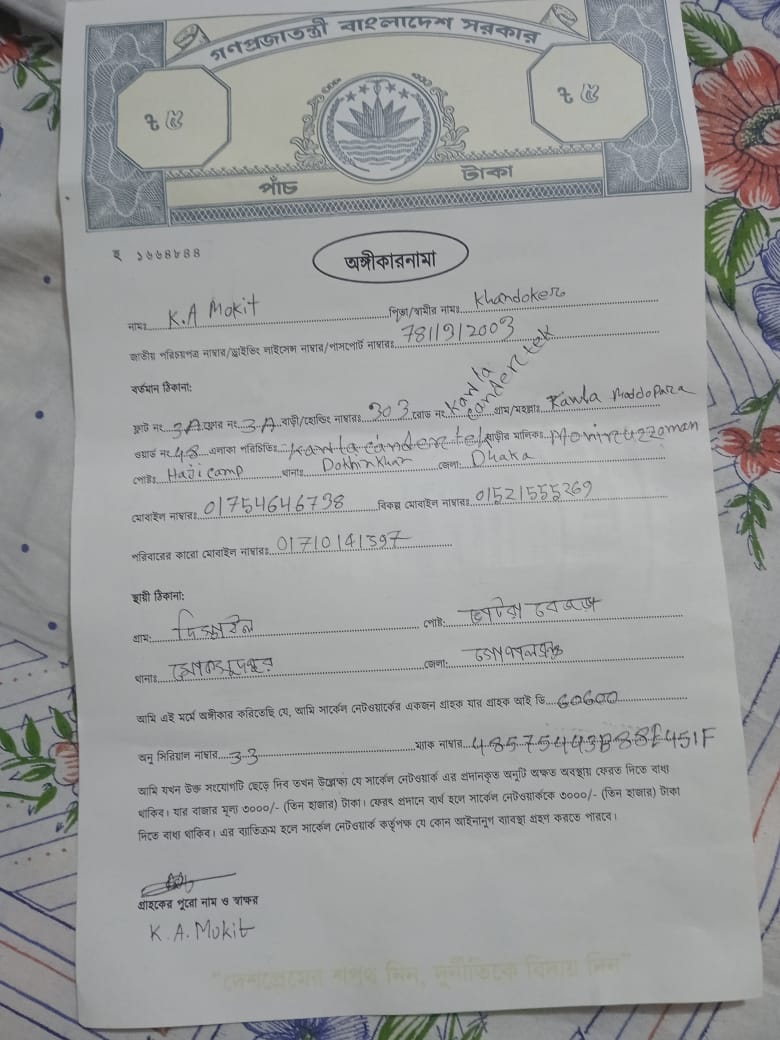 গণপ্রজাতন্ত্রী বাংলাদেশ সরকার
৳ ৫ ৳ ৫
পাঁচ টাকা
ই ১৬৬৪৮৪৪
অঙ্গীকারনামা
নামঃ K.A Mokit পিতা/স্বামীর নামঃ Khandoker
জাতীয় পরিচয়পত্র নাম্বার/ড্রাইভিং লাইসেন্স নাম্বার/পাসপোর্ট নাম্বারঃ 7811912003
বর্তমান ঠিকানা:
ফ্লাট নং 3A ফ্লোর নং 3A বাড়ী/হোল্ডিং নাম্বারঃ 303 রোড নং Kawla cander tek গ্রাম/মহল্লাঃ Kawla Maddo Para
ওয়ার্ড নং 48 এলাকা পরিচিতিঃ Kawla cander tek বাড়ীর মালিকঃ Moniruzzaman
পোষ্টঃ Haji camp থানাঃ Dokhin khan জেলাঃ Dhaka
মোবাইল নাম্বারঃ 01754646738 বিকল্প মোবাইল নাম্বারঃ 01521555269
পরিবারের কারো মোবাইল নাম্বারঃ 01710141397
স্থায়ী ঠিকানা:
গ্রাম: পোষ্ট:
থানাঃ জেলা:
আমি এই মর্মে অঙ্গীকার করিতেছি যে, আমি সার্কেল নেটওয়ার্কের একজন গ্রাহক যার গ্রাহক আই ডি 60600
অনু সিরিয়াল নাম্বার 33 ম্যাক নাম্বার
আমি যখন উক্ত সংযোগটি ছেড়ে দিব তখন উল্লেখ্য যে সার্কেল নেটওয়ার্ক এর প্রদানকৃত অনুটি অক্ষত অবস্থায় ফেরত দিতে বাধ্য
থাকিব। যার বাজার মূল্য ৩০০০/- (তিন হাজার) টাকা। ফেরৎ প্রদানে ব্যর্থ হলে সার্কেল নেটওয়ার্ককে ৩০০০/- (তিন হাজার) টাকা
দিতে বাধ্য থাকিব। এর ব্যতিক্রম হলে সার্কেল নেটওয়ার্ক কর্তৃপক্ষ যে কোন আইনানুগ ব্যবস্থা গ্রহণ করতে পারবে।
গ্রাহকের পুরো নাম ও স্বাক্ষর
K. A. Mokit
"দেশপ্রেমের শপথ নিন, দুর্নীতিকে বিদায় দিন"